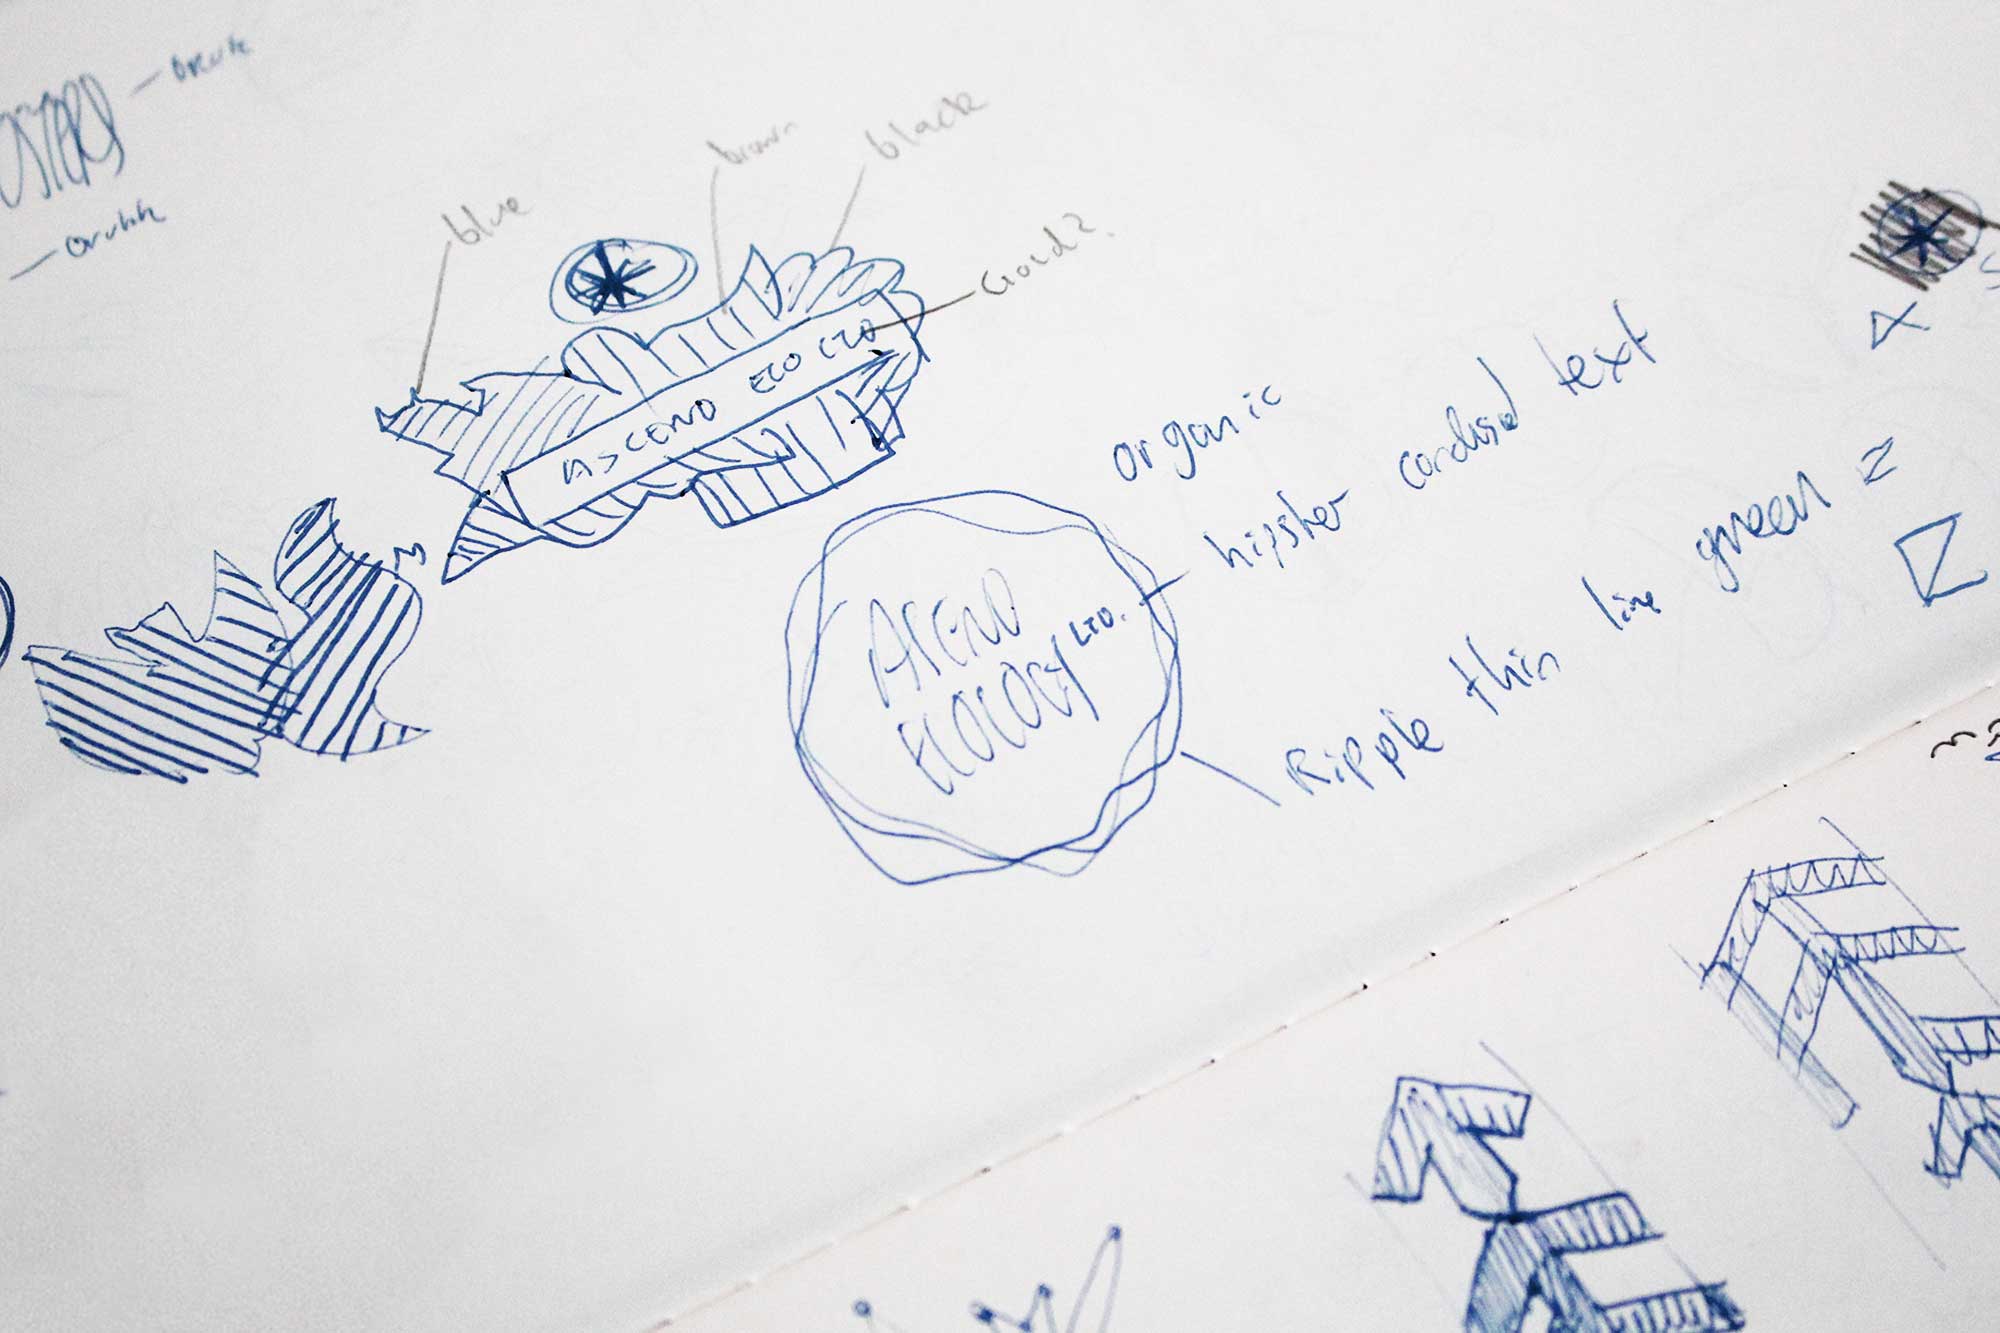 blue
brown
black
Gold?
ASCEND ECO LTD
organic
hipster condensed text
ASCEND
ECOLOGY LTD.
Ripple thin line green =